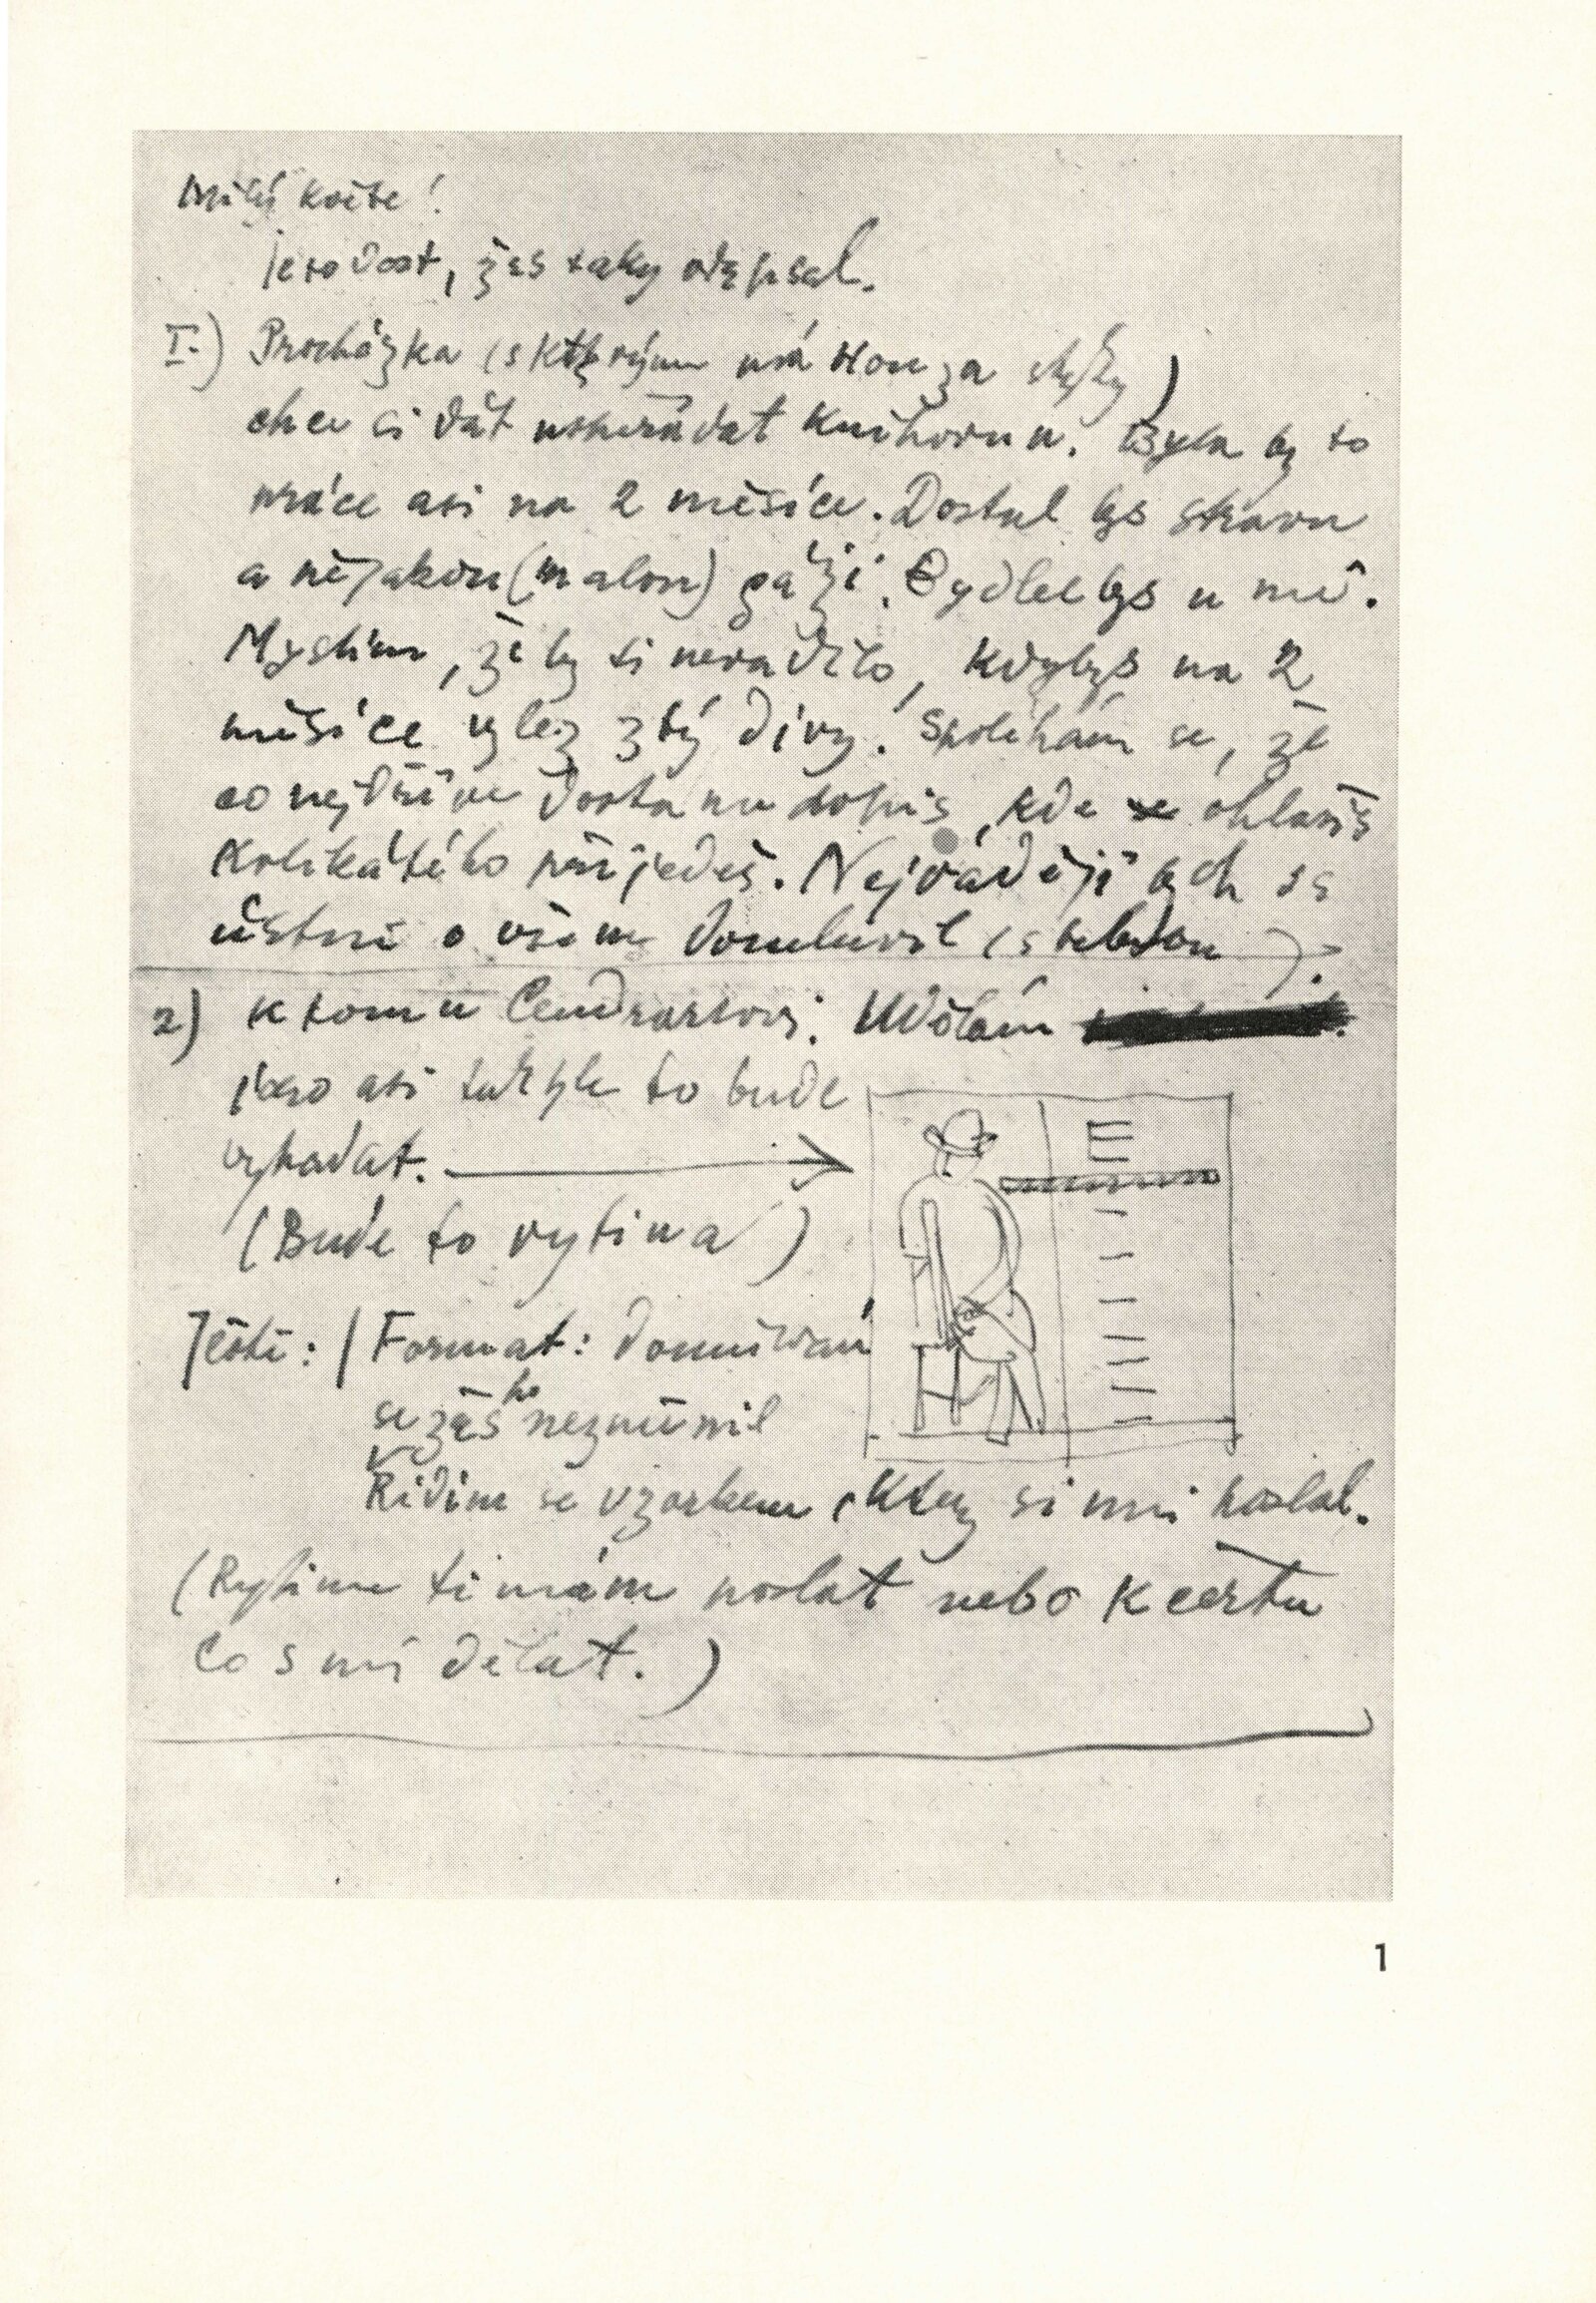 Milý Květe!
je to dost, žes taky odepsal.
I.) Procházka (s kterým má Honza styky)
chce si dát uspořádat knihovnu. Byla by to
práce asi na 2 měsíce. Dostal bys stravu
a nějakou (malou) gáži. Bydlel bys u mě.
Myslím, že by ti nevadilo, kdybys na 2
měsíce vylez z tý díry. Spoléhám se, že
co nejdříve dostanu dopis, kde ohlásíš
kolikátého přijedeš. Nejraději bych se
ústně o všem domluvil (s tebou).
2) K tomu Cendrarsovi. Udělám
jako asi takhle to bude
vypadat.
(Bude to rytina)
Ještě: Format: Doufám
se žes ho nezměnil
Řídím se vzorkem, který si mi poslal.
(Rytinu ti mám poslat nebo k čertu
co s ní dělat.)
1